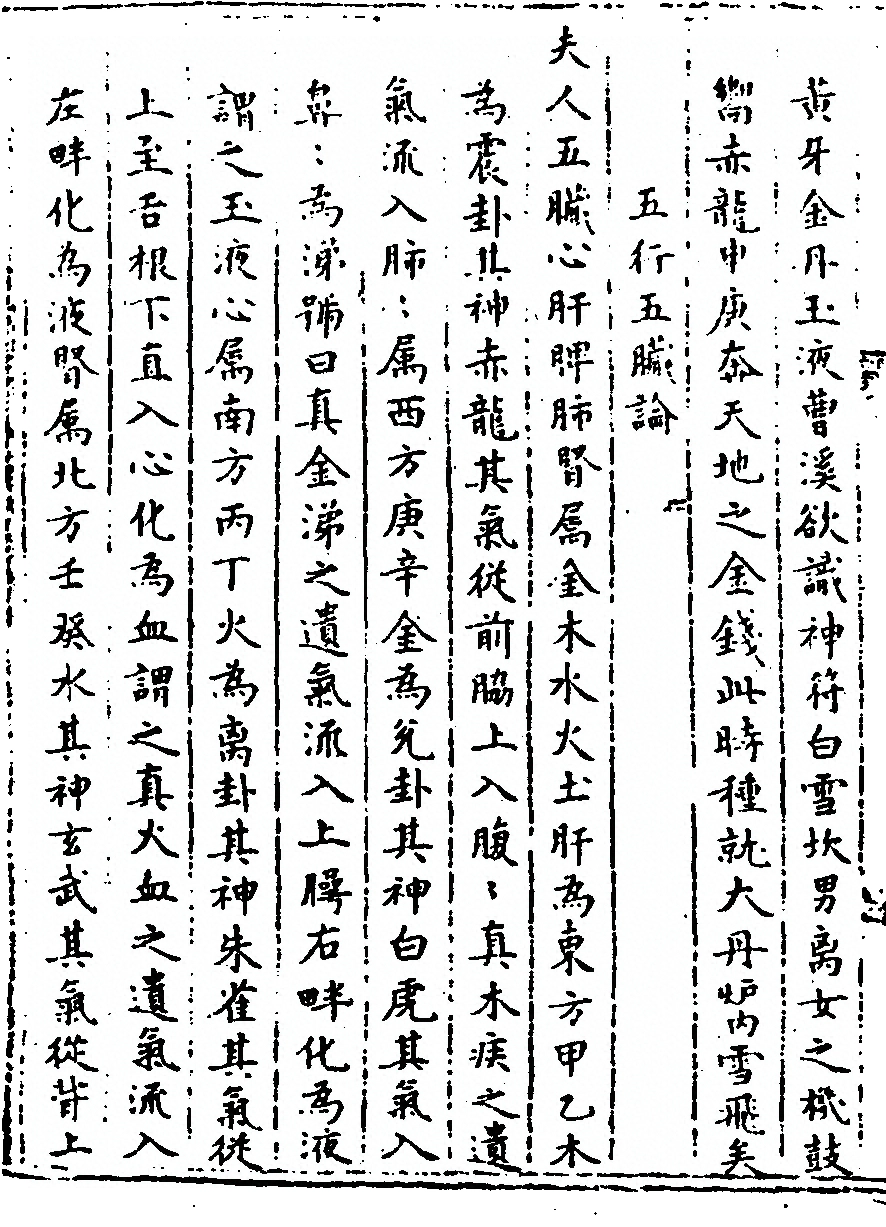 黃牙金丹玉液曹溪欲識神符白雪坎男离女之機鼓
響赤龍申庚奔天地之金錢此時種就大丹炉內雪飛矣
五行五臟論
夫人五臟心肝脾肺腎属金木水火土肝為東方甲乙木
為震卦其神赤龍其氣從前脇上入腹〻真木痰之遺
氣流入肺〻属西方庚辛金為兊卦其神白虎其氣入
鼻〻為涕號曰真金涕之遺氣流入上腭右畔化為液
謂之玉液心属南方丙丁火為离卦其神朱雀其氣從
上至舌根下直入心化為血謂之真火血之遺氣流入
左畔化為液腎属北方壬癸水其神玄武其氣從背上